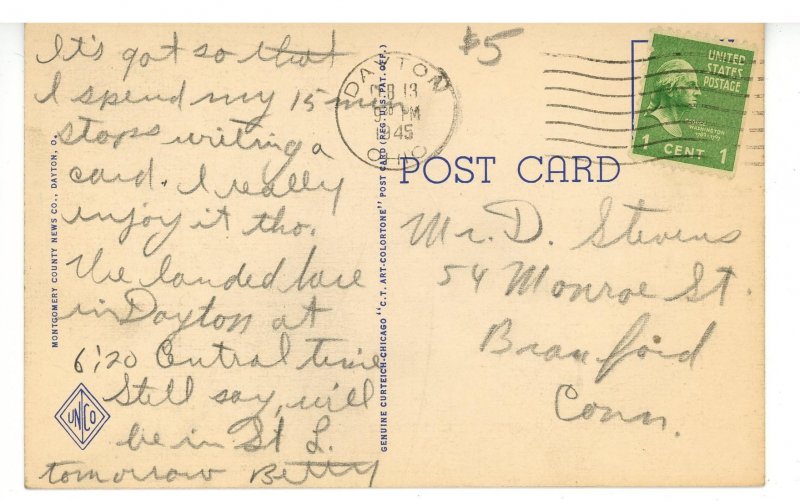 It's got so that
I spend my 15 min
stops writing a
card. I really
enjoy it tho.
We landed here
in Dayton at
6:20 Central time
Still say, will
be in St L.
tomorrow Betty
MONTGOMERY COUNTY NEWS CO., DAYTON, O.
UNCO
GENUINE CURTEICH-CHICAGO "C.T. ART-COLORTONE" POST CARD (REG. U.S. PAT. OFF.)
$5
DAYTON
13
PM
1945
OHIO
UNITED
STATES
POSTAGE
GEORGE
WASHINGTON
1 CENT 1
POST CARD
Mr. D. Stevens
54 Monroe St.
Branford
Conn.